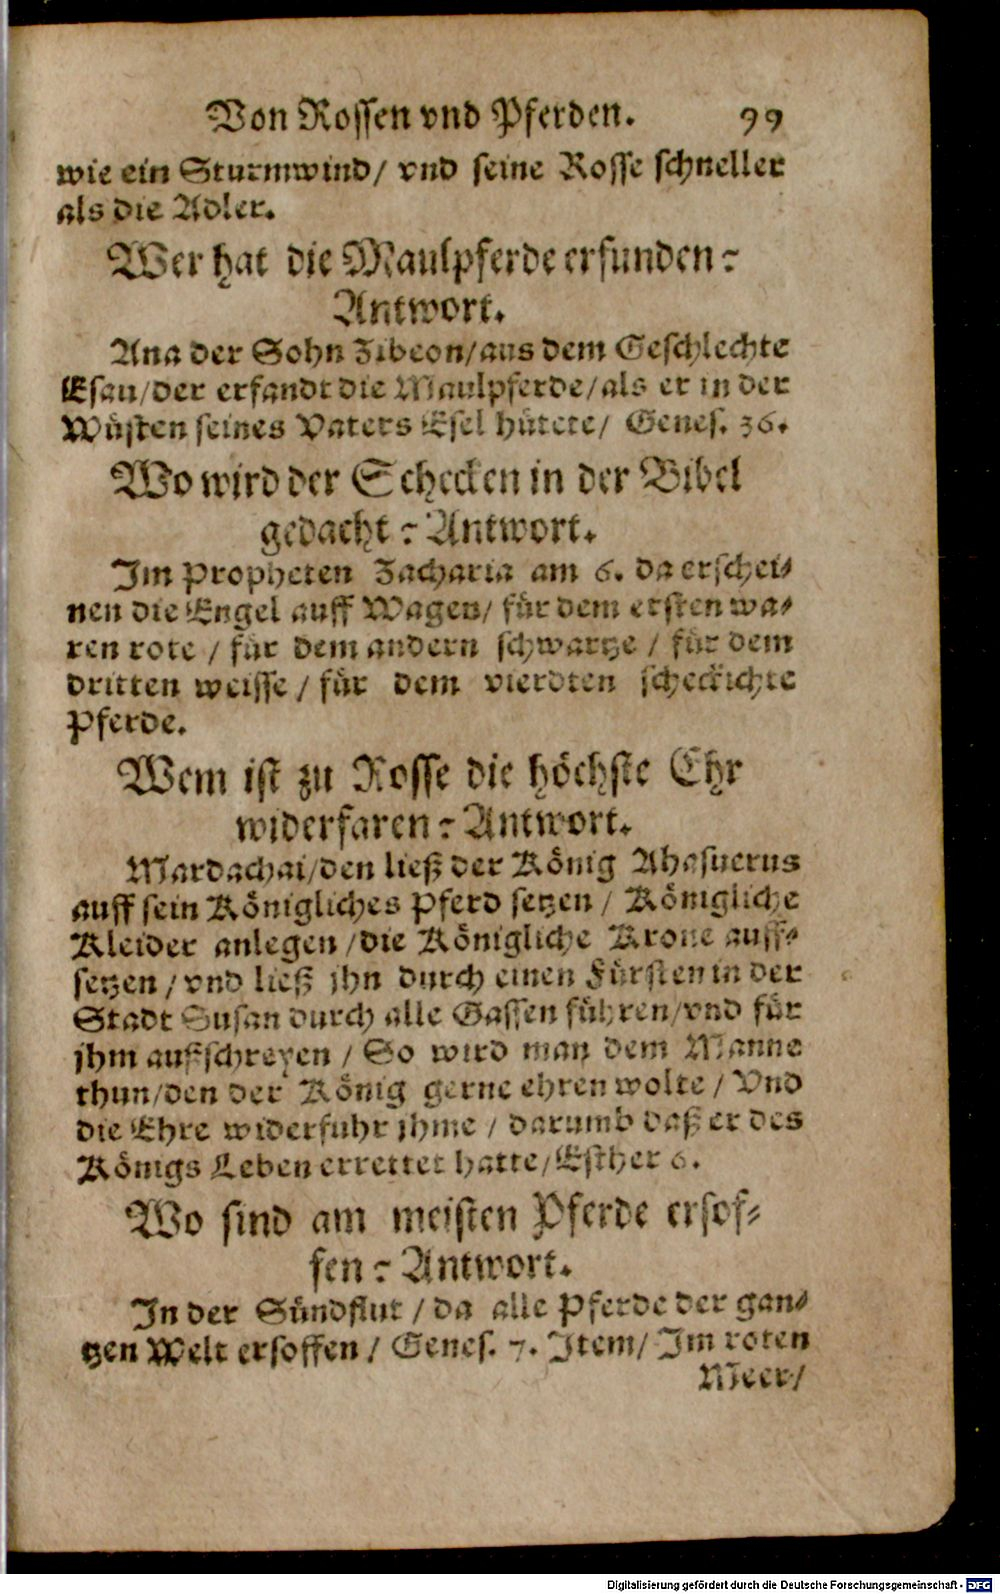 Von Rossen vnd Pferden. 99
wie ein Sturmwind/ vnd seine Rosse schneller
als die Adler.
Wer hat die Maulpferde erfunden?
Antwort.
Ana der Sohn Zibeon/aus dem Geschlechte
Esau/der erfandt die Maulpferde/als er in der
Wüsten seines Vaters Esel hütete/ Genes. 36.
Wo wird der Schecken in der Bibel
gedacht? Antwort.
Im Propheten Zacharia am 6. da erschei-
nen die Engel auff Wagen/ für dem ersten wa-
ren rote / für dem andern schwartze / für dem
dritten weisse / für dem vierdten scheckichte
Pferde.
Wem ist zu Rosse die höchste Ehr
widerfaren? Antwort.
Mardachai/den ließ der König Ahasuerus
auff sein Königliches Pferd setzen / Königliche
Kleider anlegen /die Königliche Krone auff-
setzen / vnd ließ jhn durch einen Fürsten in der
Stadt Susan durch alle Gassen führen/vnd für
jhm außschreyen / So wird man dem Manne
thun/den der König gerne ehren wolte / Vnd
die Ehre widerfuhr jhme / darumb daß er des
Königs Leben errettet hatte/Esther 6.
Wo sind am meisten Pferde ersof-
fen? Antwort.
In der Sündflut / da alle Pferde der gan-
tzen Welt ersoffen / Genes. 7. Item/ Im roten
Meer/
Digitalisierung gefördert durch die Deutsche Forschungsgemeinschaft - DFG